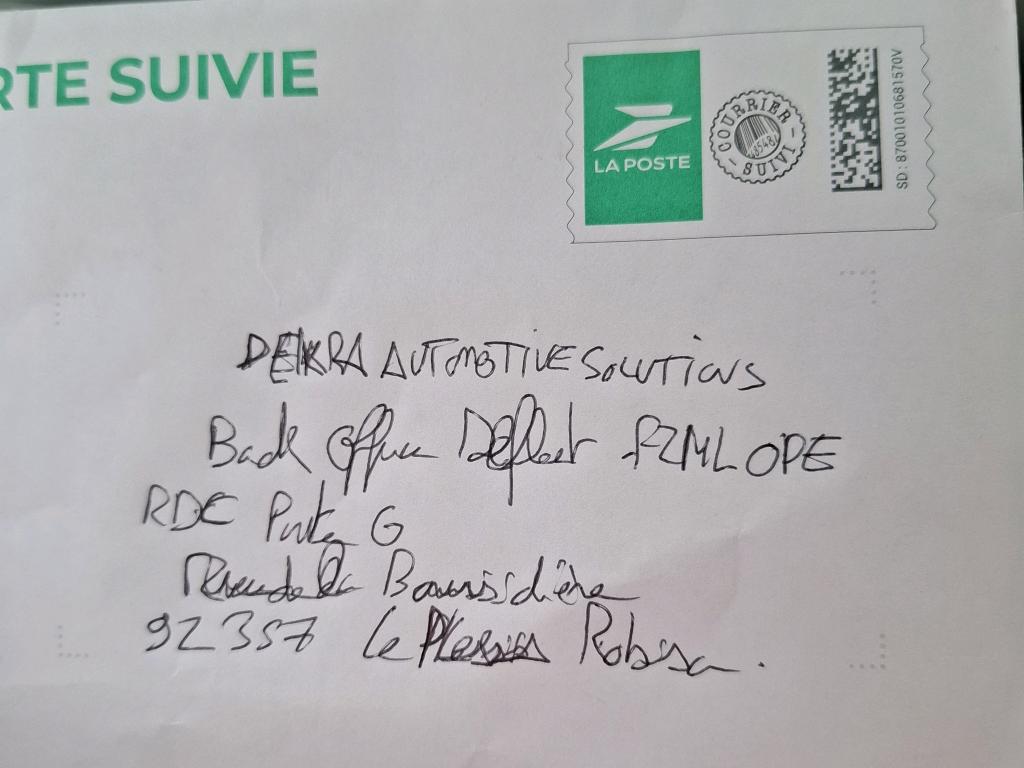 RTE SUIVIE
LA POSTE
COURRIER
SUIVI
SD : 87001010681570V
DEKRA AUTOMOTIVE SOLUTIONS
Back Office Défleet FZML OPE
RDC Porte G
de la Boursidière
92357 Le Plessis Robinson.